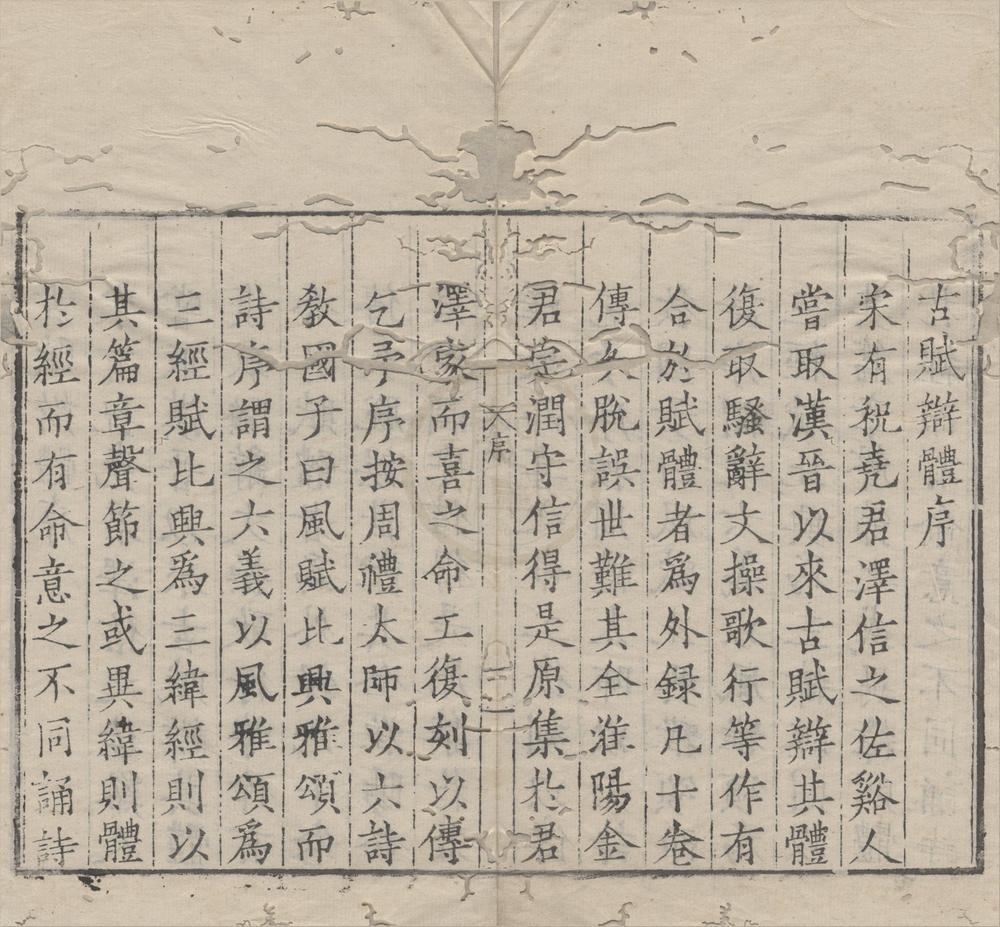 古賦辯體序
宋有祝堯君澤信之佐谿人
嘗取漢晉以來古賦辯其體
復取騷辭文操歌行等作有
合於賦體者為外録凡十卷
傳久脫誤世難其全淮陽金
君宗潤守信得是原集扵君
澤家而喜之命工復刻以傳
乞予序按周禮太師以六詩
教國子曰風賦比興雅頌而
詩序謂之六義以風雅頌為
三經賦比興為三緯經則以
其篇章聲節之或異緯則體
扵經而有命意之不同誦詩
序
一